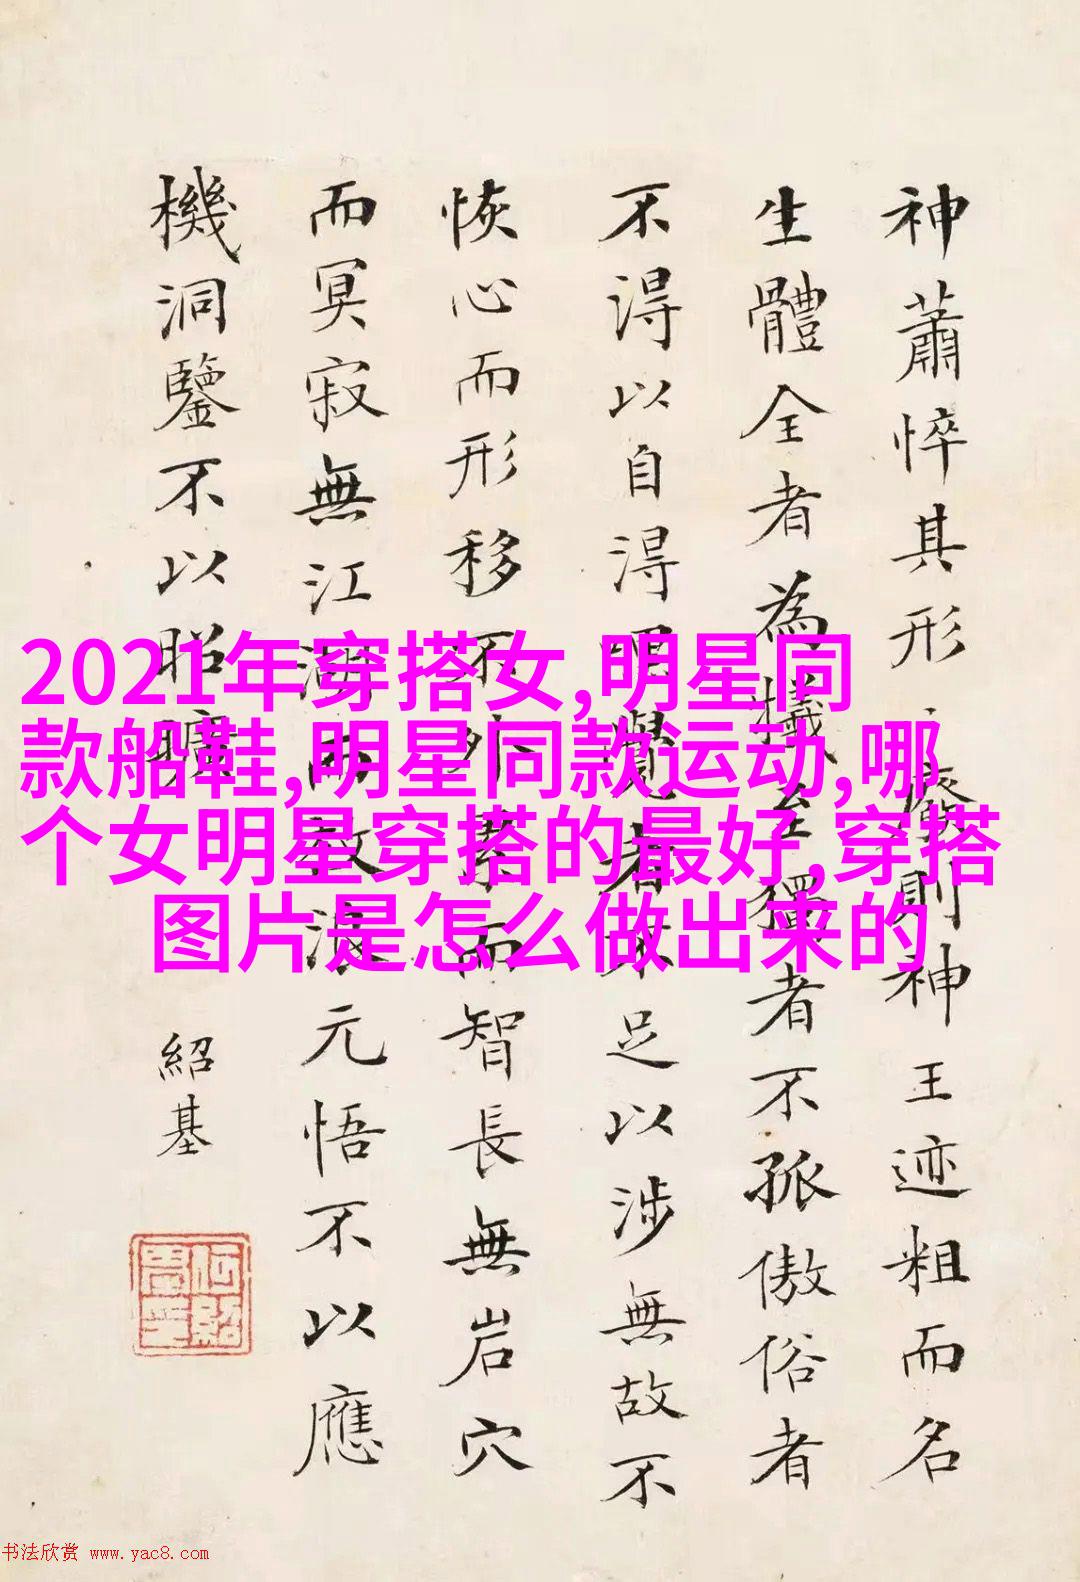 神蕭悴其形。嚴則神王迹粗而名
生體全者為犧至獨者不孤傲俗者
不得以自得覺者不足以涉無故不
恢心而形移不外累而智長無岩穴
而冥寂無江湖而放浪元悟不以應
機洞鑒不以昭曠
紹基
2021年穿搭女,明星同
款船鞋,明星同款运动,哪
个女明星穿搭的最好,穿搭
图片是怎么做出来的
书法欣赏 www.yac8.com